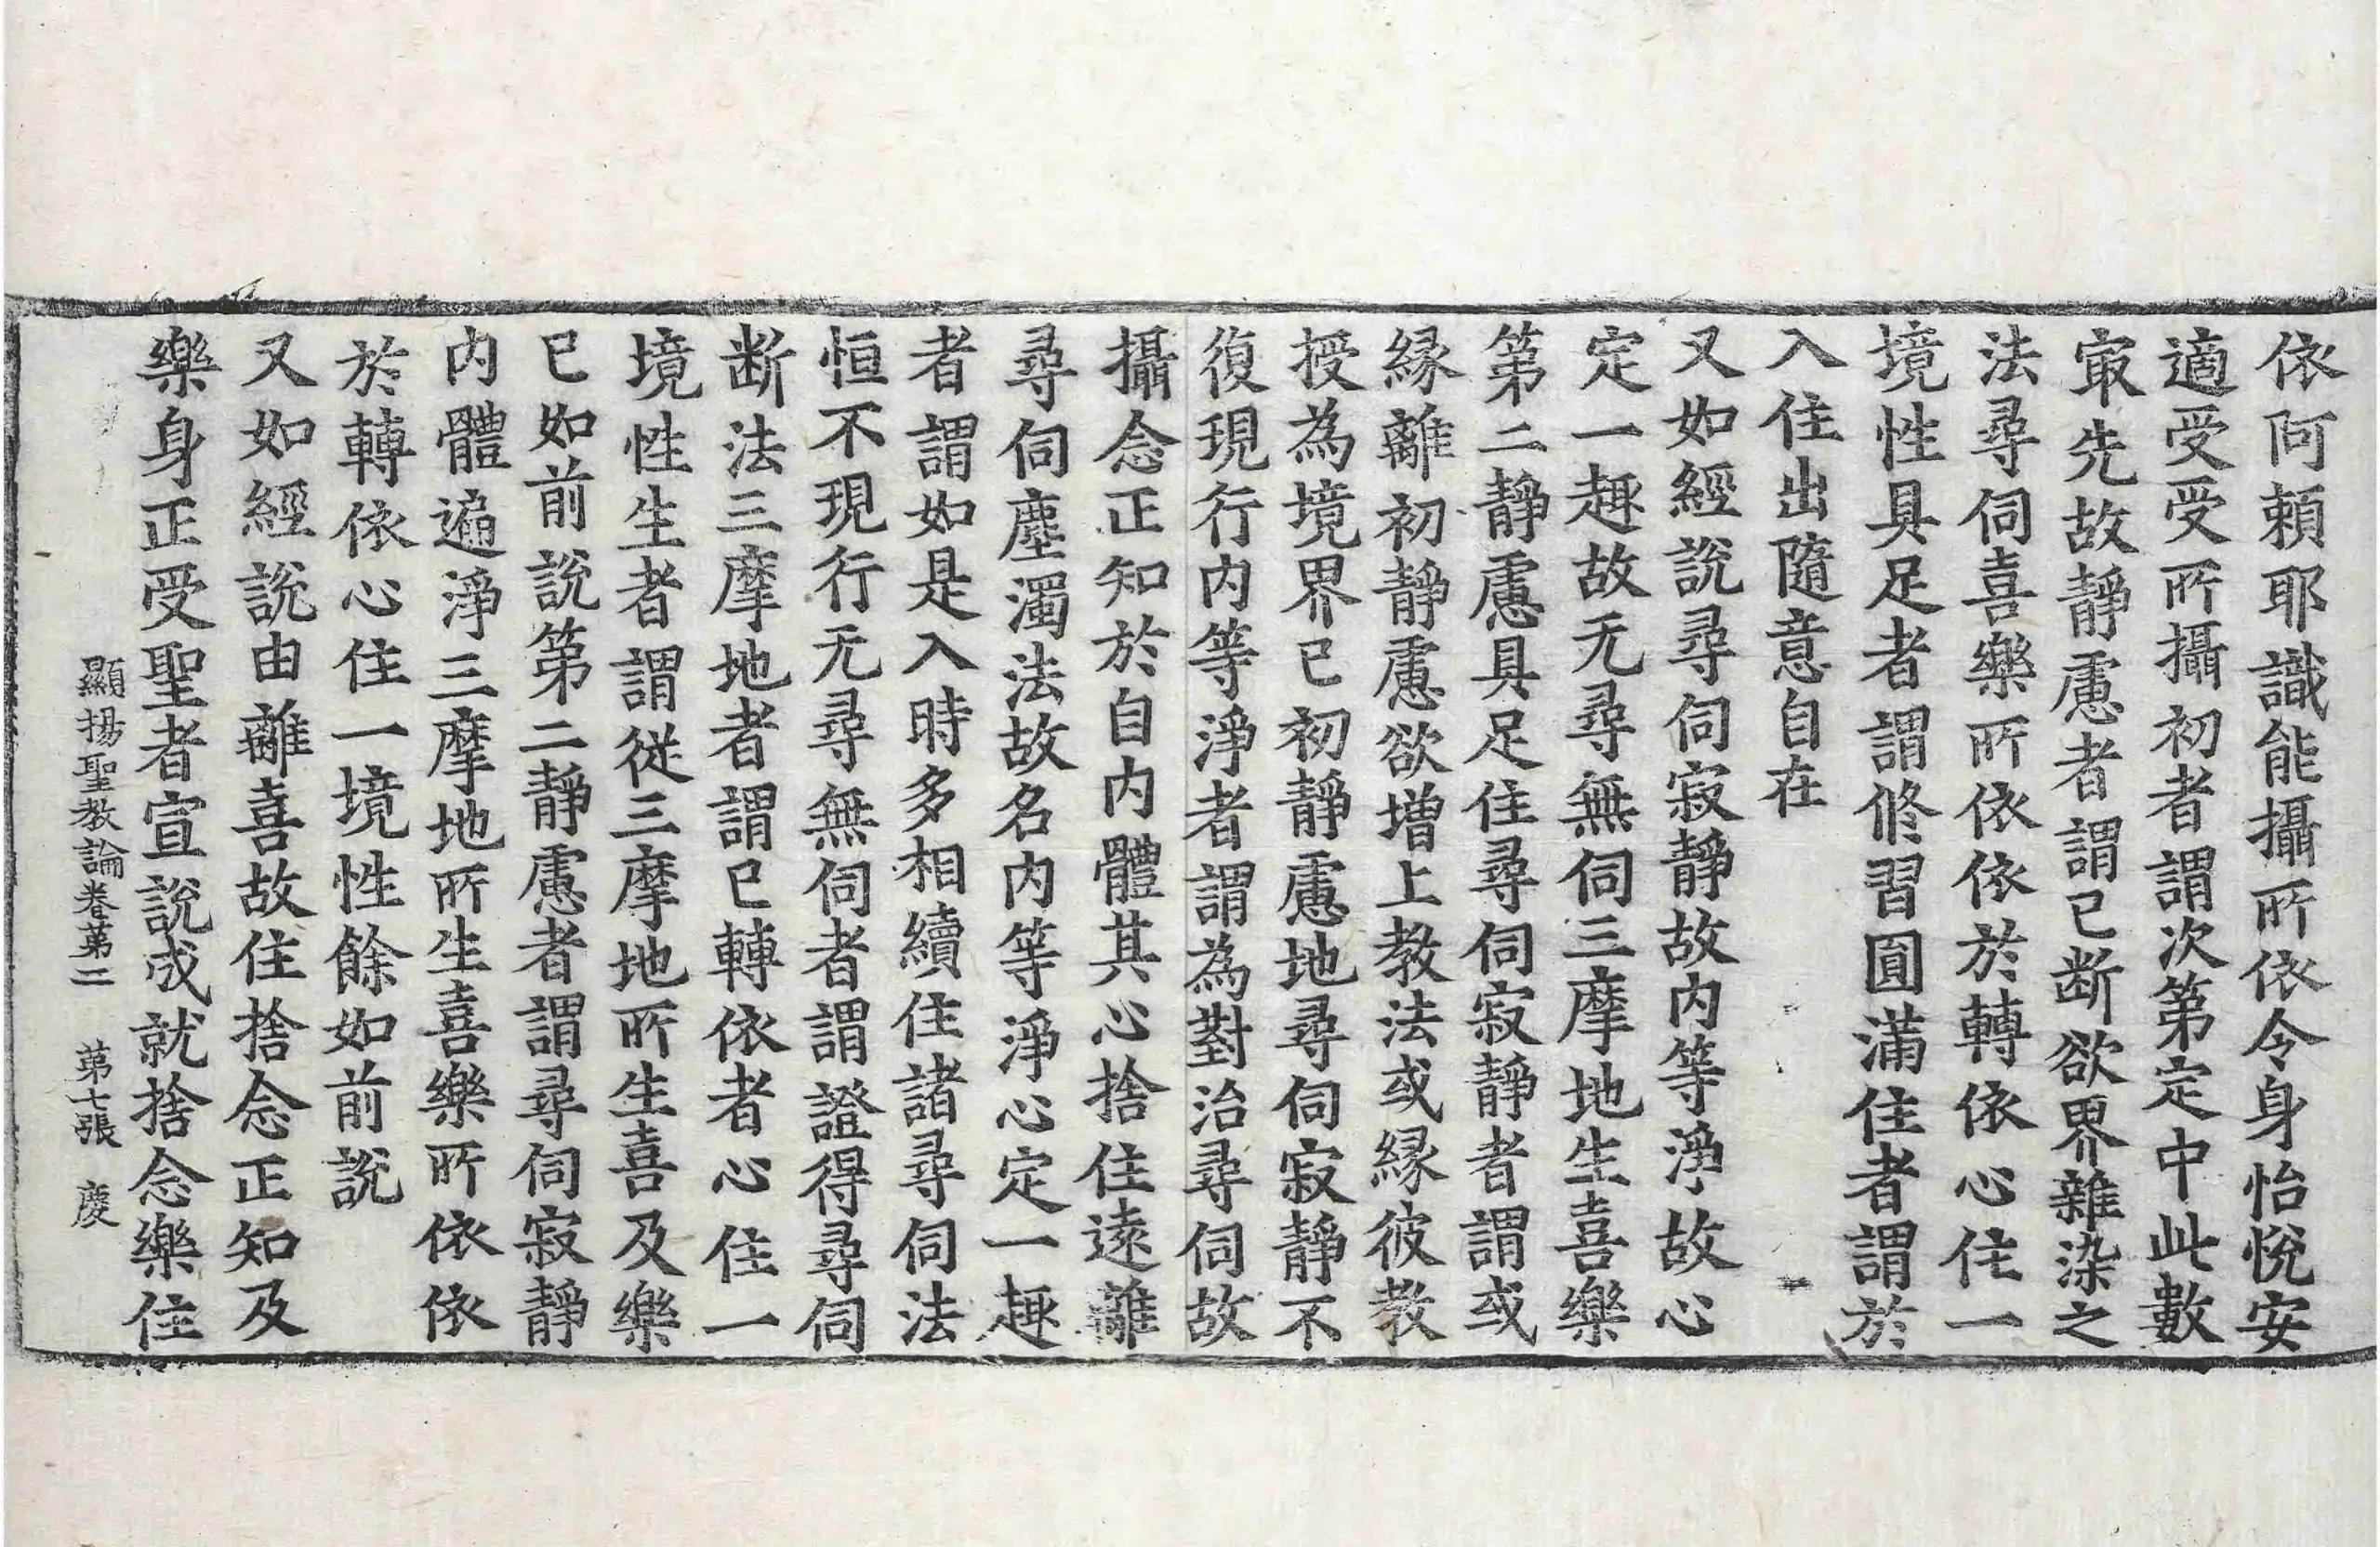 依阿頼耶識能攝所依令身怡悅安
適受受所攝初者謂次第定中此數
㝡先故靜慮者謂已断欲界雜染之
法尋伺喜樂所依依於轉依心住一
境性具足者謂修習圓滿住者謂於
入住出隨意自在
又如經說尋伺寂靜故内等淨故心
定一趣故无尋無伺三摩地生喜樂
第二靜慮具足住尋伺寂靜者謂或
縁離初靜慮欲增上教法或縁彼教
授為境界已初靜慮地尋伺寂靜不
復現行内等淨者謂為對治尋伺故
攝念正知於自内體其心捨住遠離
尋伺塵濁法故名内等淨心定一趣
者謂如是入時多相續住諸尋伺法
恒不現行无尋無伺者謂證得尋伺
断法三摩地者謂已轉依者心住一
境性生者謂從三摩地所生喜及樂
已如前說第二靜慮者謂尋伺寂靜
内體遍淨三摩地所生喜樂所依依
於轉依心住一境性餘如前說
又如經說由離喜故住捨念正知及
樂身正受聖者宣說成就捨念樂住
顯揚聖教論卷第二　第七張　慶